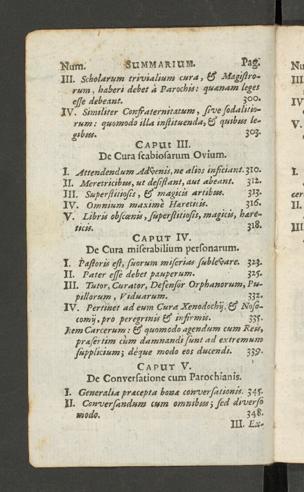 Num. SUMMARIUM. Pag.
III. Scholarum trivialium cura, & Magistro-
rum, haberi debet à Parochis: quanam leges
esse debeant. 300.
IV. Similiter Confraternitatum, sive sodalitio-
rum: quomodo illa instituenda, & quibus le-
gibus. 303.
CAPUT III.
De Cura scabiosarum Ovium.
I. Attendendum Advenis, ne alios inficiant. 310.
II. Meretricibus, ut desistant, aut abeant. 312.
III. Superstitiosis, & magicis artibus. 313.
IV. Omnium maximè Hareticis. 316.
V. Libris obscœnis, superstitiosis, magicis, hare-
ticis. 318.
CAPUT IV.
De Cura miserabilium personarum.
I. Pastoris est, suorum miserias sublevare. 323.
II. Pater esse debet pauperum. 325.
III. Tutor, Curator, Defensor Orphanorum, Pu-
pillorum, Viduarum. 332.
IV. Pertinet ad eum Cura Xenodochij, & Noso-
comij, pro peregrinis & infirmis. 335.
Item Carcerum: & quomodo agendum cum Reis,
præsertim cùm damnandi sunt ad extremum
supplicium; déque modo eos ducendi. 339.
CAPUT V.
De Conversatione cum Parochianis.
I. Generalia præcepta bonæ conversationis. 345.
II. Conversandum cum omnibus; sed diverso
modo. 348.
III. Ex-